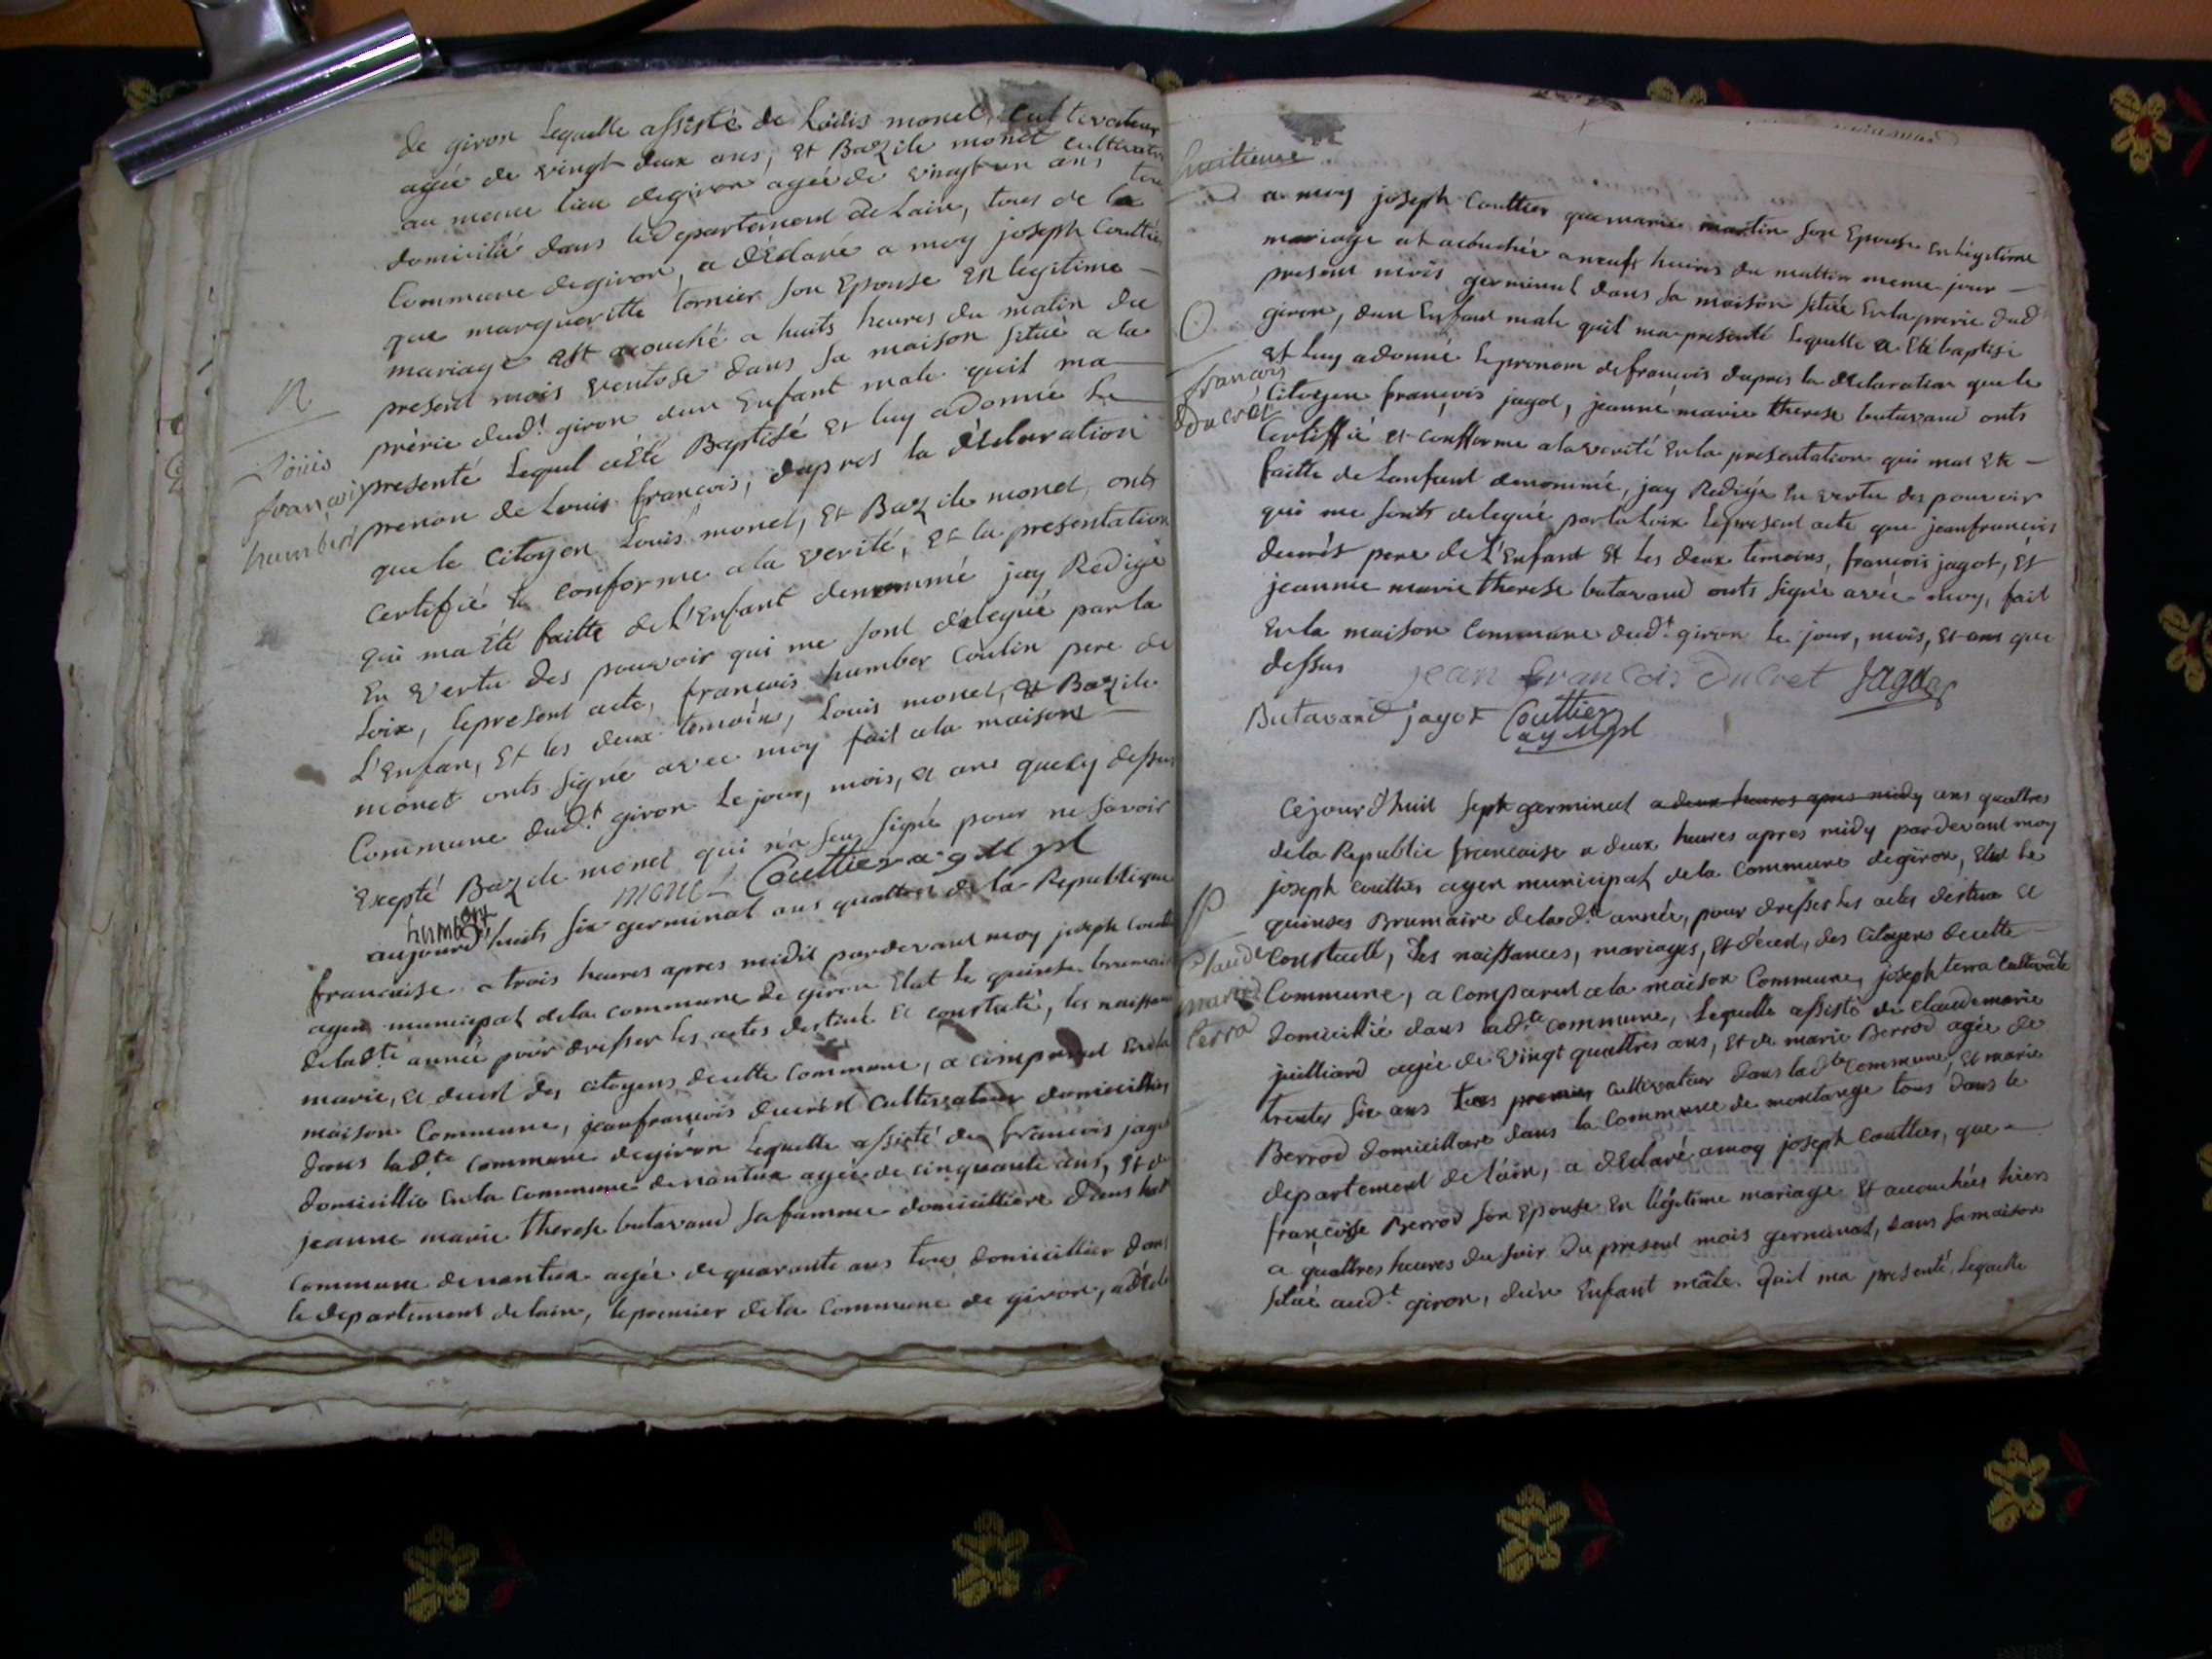 de giron Lequelle assisté de Loüis monet, cultivateur
agée de vingt deux ans, et Bazile monet cultivate
au meme lieu degiron agée de vingt un ans
domicilié dans le Departement de Lain, tous de la
Commune degiron, a déclaré a moy joseph Couttier
que margueritte tornier son Epouse En legitime
mariage est acouché a huits heures du matin du
present mois ventose dans sa maison situé a la
prérie dud.t giron dun Enfant male quil ma
presenté Lequel aété Baptisé et luy adonné Le
prenon de Louis françois, dapres la déclaration
que le Citoyen Louis monet, et Bazile monet, onts
certifié conforme ala verité, et la presentation
qui ma été faitte de l'Enfant denommé jay Redigé
En vertu des pouvoir qui me sont délegué par la
Loix, lepresent acte, francois humber Coulin pere de
L'Enfan, Et les deux temoins, Louis monet, et Bazile
monet onts signé avec moy fait ala maison
Commune dud.t giron Le jour, mois, et ans que cy dessus
Excepté Bazile monet qui na seu signé pour ne savoir
monet Couttier
humbert
aujourd'huits six germinal ans quattre de la Republique
francaise a trois heures apres midit pardevant moy joseph Coutti
agen municipal dela commune de giron Elut le quinse brumair
deladte année pour dresser les actes destiné a constaté, les naissan
marie, et deced des citoyens decette Commune, a comparut Enla
maison Commune, jeanfrancois ducrest cultivateur domicillier
dans ladte commune degiron Lequelle assisté de francois jagot
domicillié En la Commune denantua agée de cinquante ans, et de
jeanne marie therese butavand safamme domicilliere dans
Commune denantua agée de quarante ans tous domicillier dans
le departement de lain, le premier dela Commune de giron,
N
Loüis
françois
humbert
huitieme
a moy joseph Couttier que marie martin son Epouse En legitime
mariage at acouchée a neufs heures du mattin meme jour
present mois germinal dans sa maison située Enla prerie dud
giron, dun Enfant male quil ma presenté Lequelle a Eté baptisé
et luy adonné Leprenom defrancois dapres la déclaration que le
Citoyen françois jagot, jeanne marie therese butavand onts
Certiffié et confforme alaverité Enla presentation qui mat Eté
faitte de Lenfant denommé, jay Redigé En vertu des pouvoir
qui me sonts delegué par la Loix Lepresent acte que jeanfrancois
ducrèt pere de L'Enfant et les deux temoins, francois jagot, Et
jeanne marie therese butavand onts signé avéc moy, fait
En la maison Commune dud.t giron le jour, mois, et ans que
dessus jean francois Ducret Jagot
Butavand jagot Couttier
O
francois
Ducrèt
Cejourd'huit sept germinal a deux heures apres midy ans quattres
dela Republic francaise a deux heures apres midy pardevant moy
joseph couttier agen municipal dela Commune degiron, Elut Le
quinses Brumaire delad.te année, pour dresser les actes destiné a
Constaté, Les naissances, mariages, et déced, des Citoyens decette
Commune, a comparut ala maison Commune, joseph terra cultivate
domicillié dans ladte commune, Lequelle assisté de claudemarie
juilliard agée de vingt quattres ans, et de marie Berrod agée de
trentes six ans tous premier cultivateur dans ladte commune, et marie
Berrod domicilliere dans la Commune de montange tous dans le
departement de lain, a déclaré amoy joseph Couttier, que
françoise Berrod son Epouse En légitime mariage et acouchées hiers
a quattres heures du soir du present mois germinal, dans samaison
situé aud.t giron, dun Enfant mâle. Quil ma presenté, Lequelle
P
Claude
marie
terra